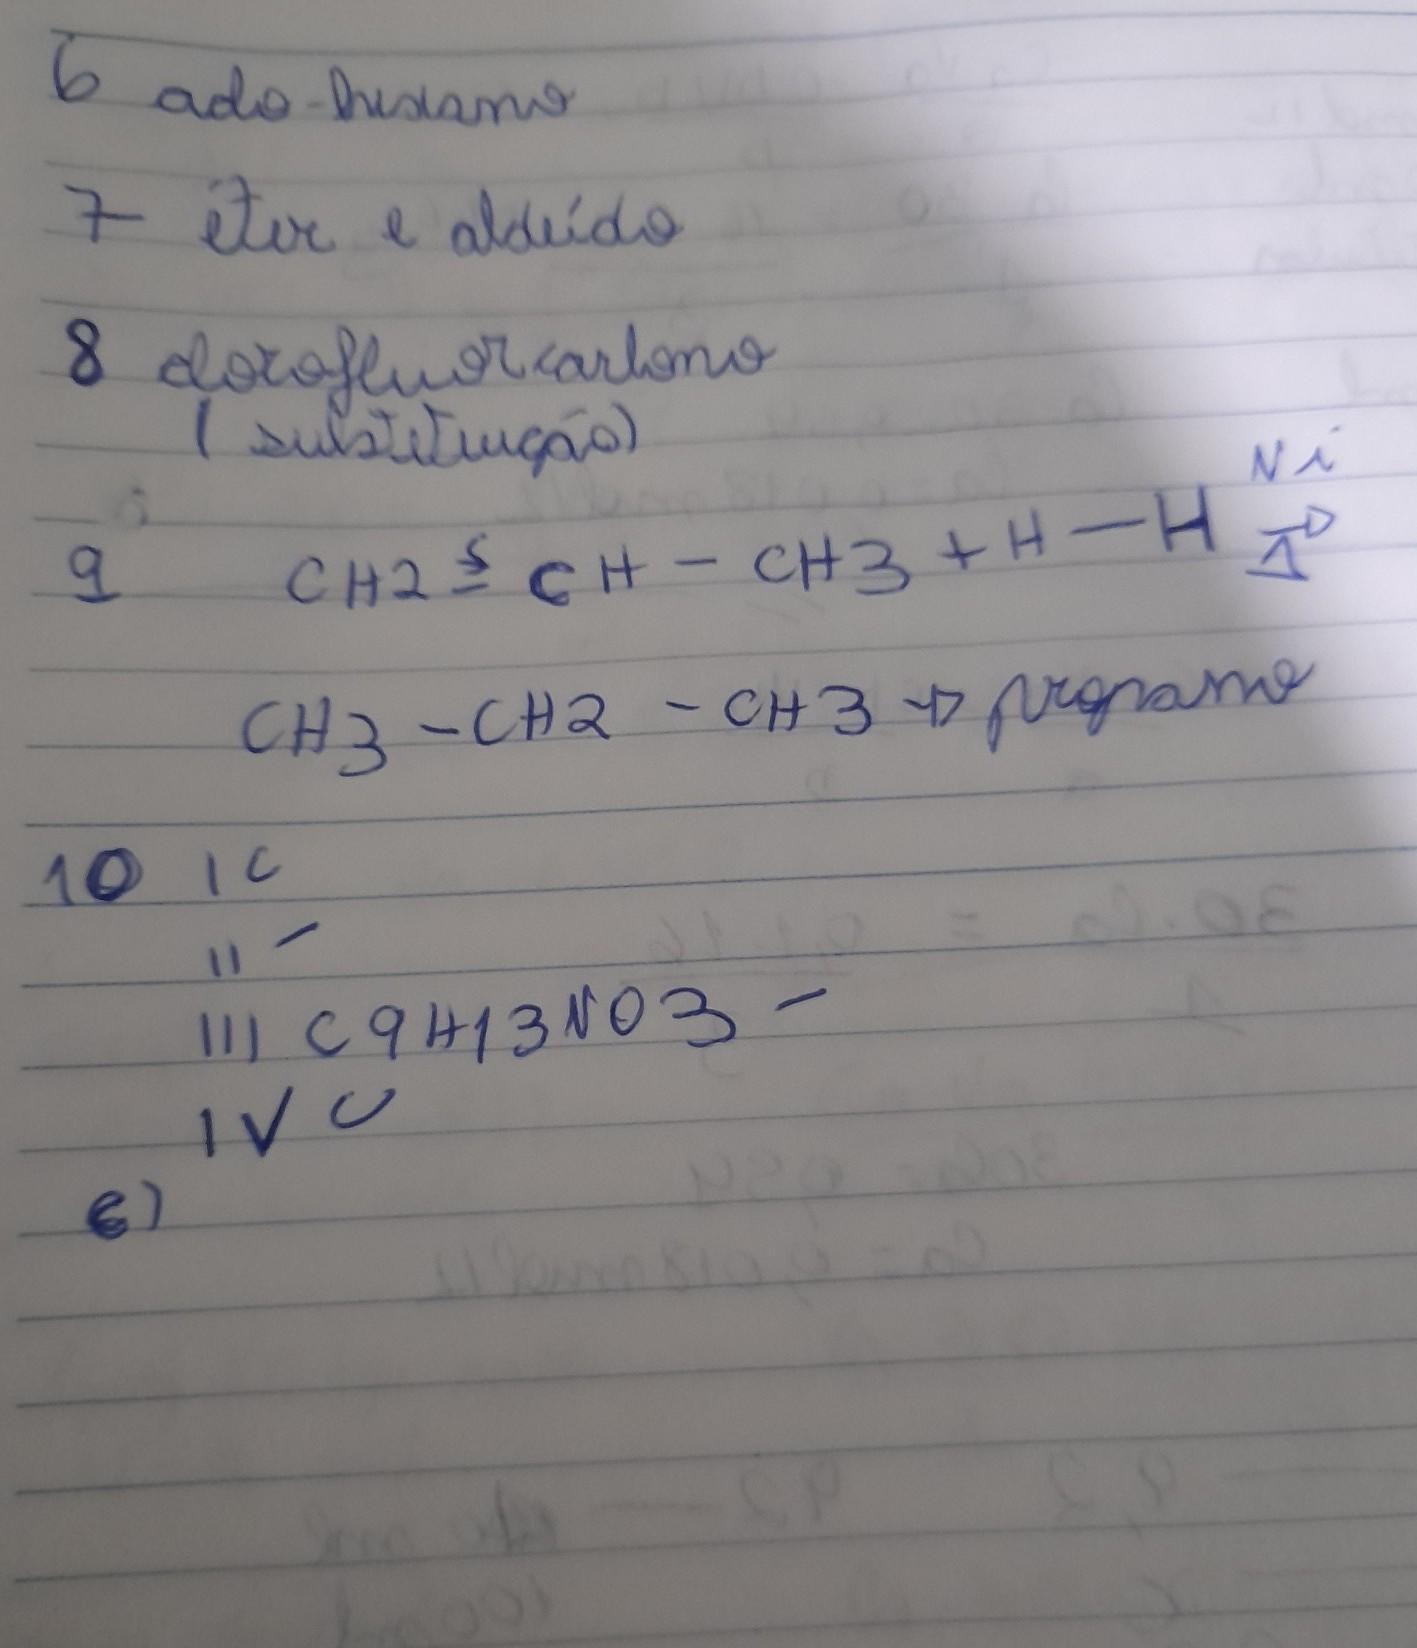 6 ciclo-hexano
7- éter e aldeído
8 clorofluorcarbono
(substituição)
Ni
9 CH2 = CH - CH3 + H - H →
Δ
CH3 - CH2 - CH3 → propano
10 I C
II -
III C9H13NO3 -
IV C
e)